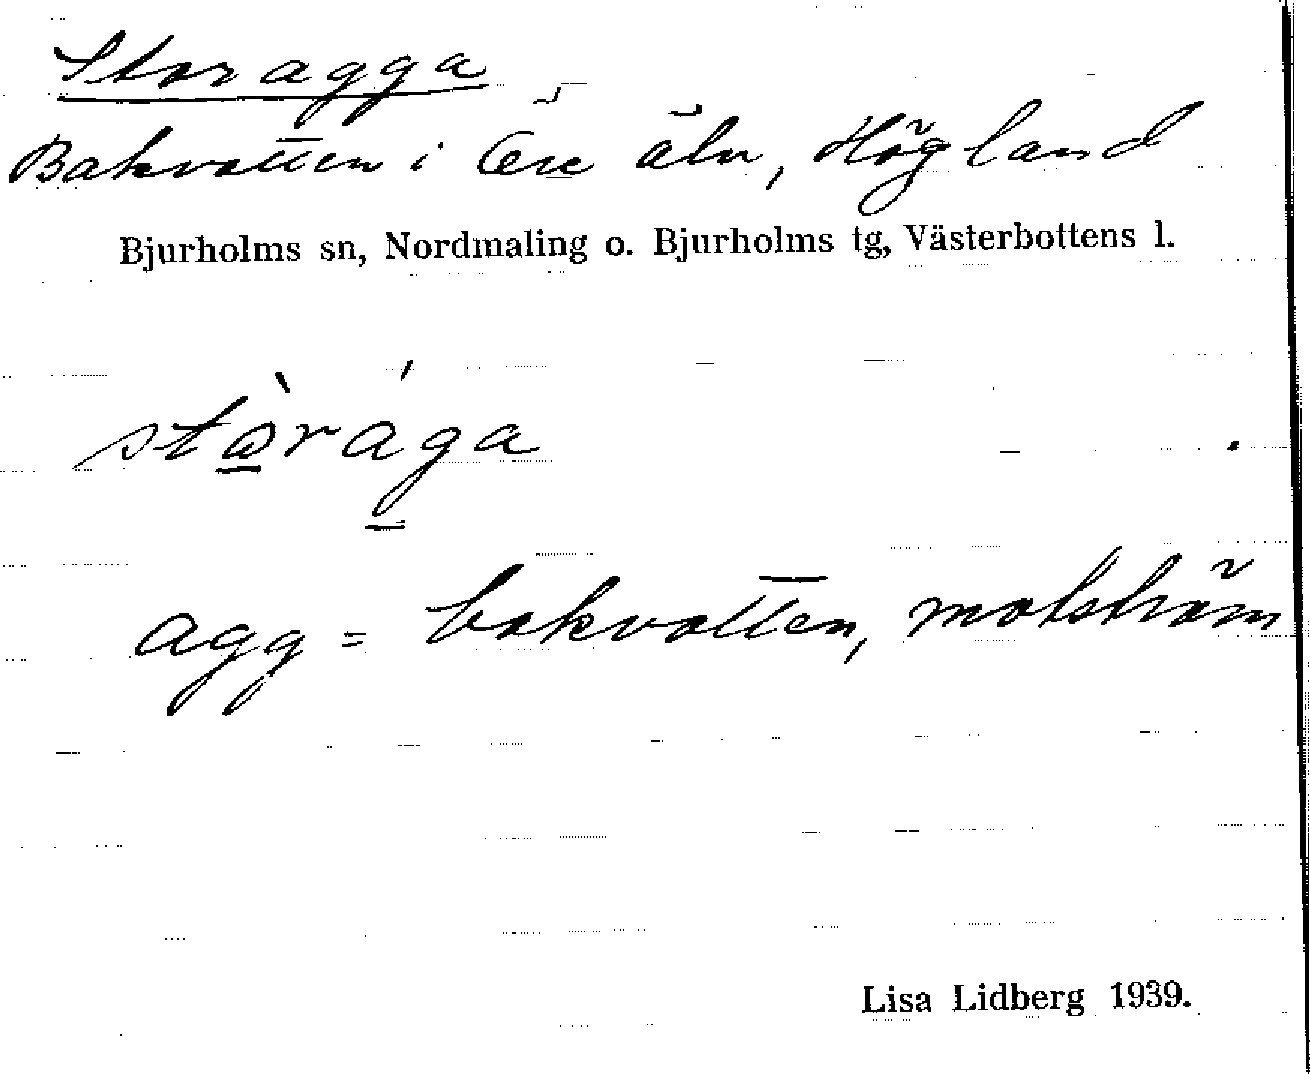 Storagga
Bakvatten i Öre älv, Högland
Bjurholms sn, Nordmaling o. Bjurholms tg, Västerbottens l.
stꙍ̀rága
agg = bakvatten, motström
Lisa Lidberg 1939.